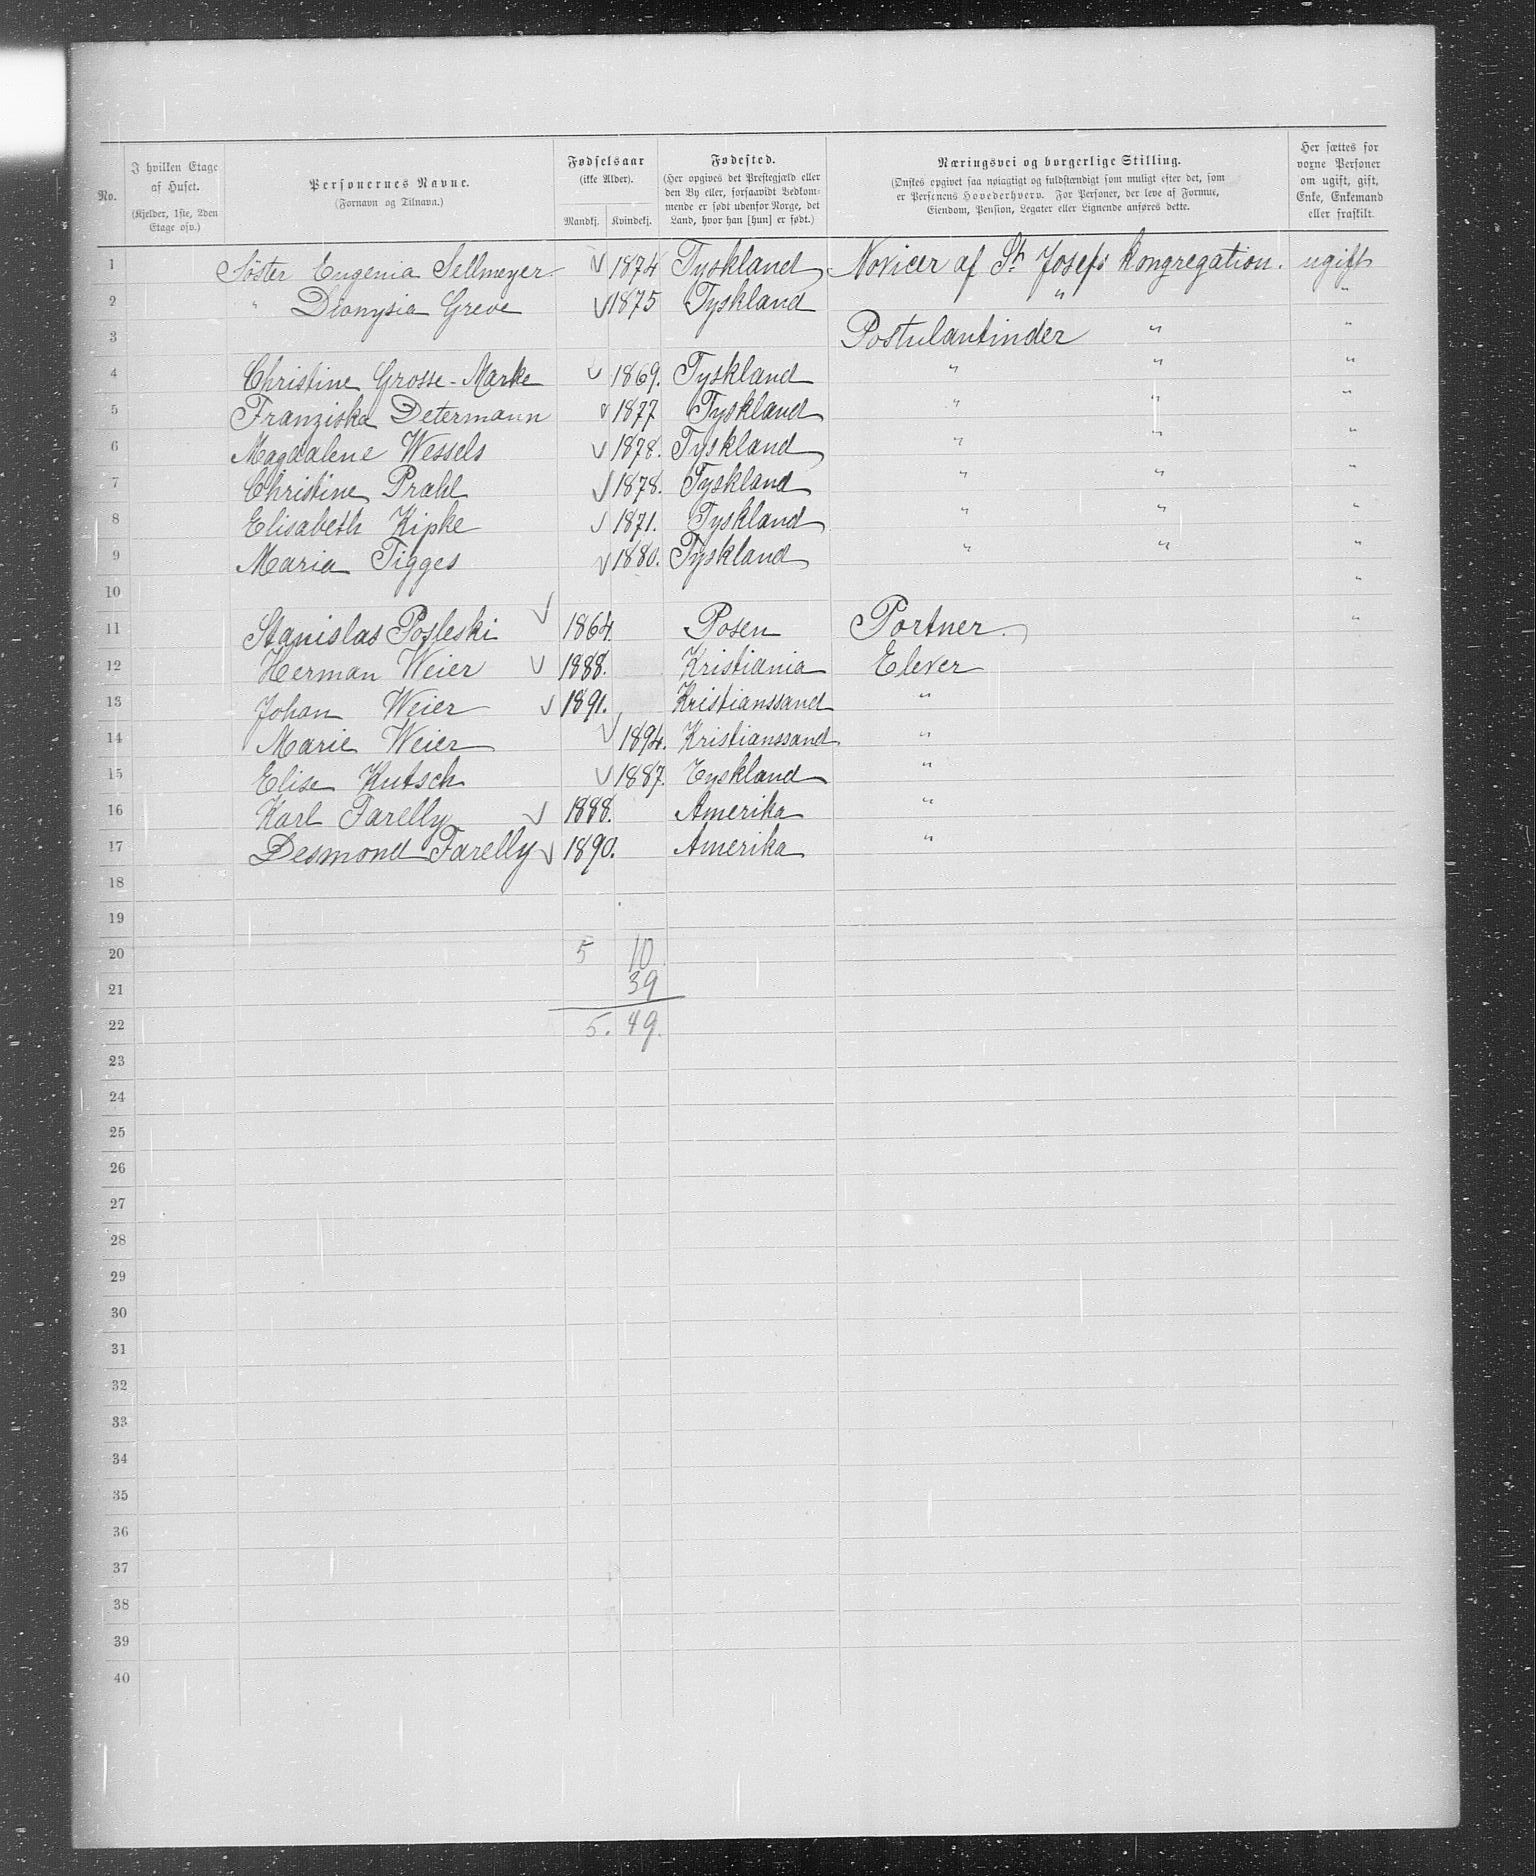 No.
I hvilken Etage af Huset.
(Kjelder, 1ste, 2den Etage osv.)
Personernes Navne.
(Fornavn og Tilnavn.)
Fødselsaar
(ikke Alder).
Mandkj. Kvindekj.
Fødested.
(Her opgives det Prestegjæld eller
den By eller, forsaavidt Vedkom-
mende er født udenfor Norge, det
Land, hvor han [hun] er født.)
Næringsvei og borgerlige Stilling.
(Ønskes opgivet saa nøiagtigt og fuldstændigt som muligt efter det, som
er Personens Hovederhverv. For Personer, der leve af Formue,
Eiendom, Pension, Legater eller Lignende anføres dette.
Her sættes for
voxne Personer
om ugift, gift,
Enke, Enkemand
eller fraskilt.
1 Søster Eugenia Sellmeyer 1874 Tyskland Novicer af St. Josefs Kongregation. ugift
2 " Dionysia Greve 1875 Tyskland " "
3 Postulantinder " "
4 Christine Grosse-Marke 1869. Tyskland " " "
5 Franziska Determann 1877 Tyskland " " "
6 Magdalene Wessels 1878. Tyskland " " "
7 Christine Prahl 1878. Tyskland " " "
8 Elisabeth Kipke 1871. Tyskland " " "
9 Maria Tigges 1880. Tyskland " " "
10 "
11 Stanislas 1864. Posen Portner. "
12 Herman Weier 1888. Kristiania Elever
13 Johan Weier 1891. Kristianssand "
14 Marie Weier 1894. Kristianssand "
15 Elise Kutsch 1887. Tyskland "
16 Karl Farelly 1888. Amerika "
17 Desmond Farelly 1890. Amerika "
18
19
20 5 10.
21 39
22 5. 49.
23
24
25
26
27
28
29
30
31
32
33
34
35
36
37
38
39
40